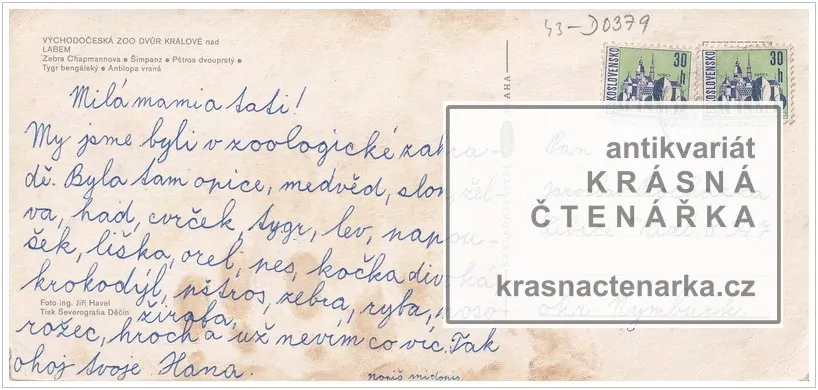 43-D0379
VÝCHODOČESKÁ ZOO DVŮR KRÁLOVÉ nad
LABEM
Zebra Chapmannova • Šimpanz • Pštros dvouprstý •
Tygr bengálský • Antilopa vraná
30
h
KOSLOVENSKO
30
h
KOSLOVENSKO
Milá mami a tati!
My jsme byli v zoologické zahra-
dě. Byla tam opice, medvěd, slon, žel-
va, had, cvrček, tygr, lev, papou-
šek, liška, orel, pes, kočka divoká
krokodýl, pštros, zebra, ryba, noso-
žirafa,
rožec, hroch a už nevím co víc. Tak
ahoj tvoje Hana.
Foto ing. Jiří Havel
Tisk Severografia Děčín
Pan
okr. Nymburk
antikvariát
KRÁSNÁ
ČTENÁŘKA
krasnactenarka.cz